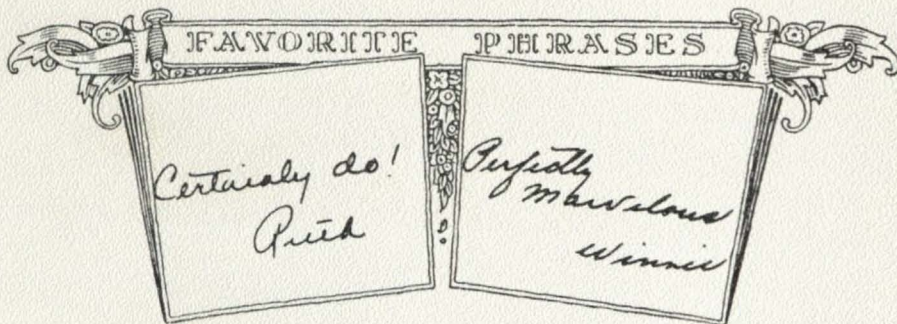 FAVORITE PHRASES
Certainly do!
Ruth
Perfectly
Marvelous
Winnie